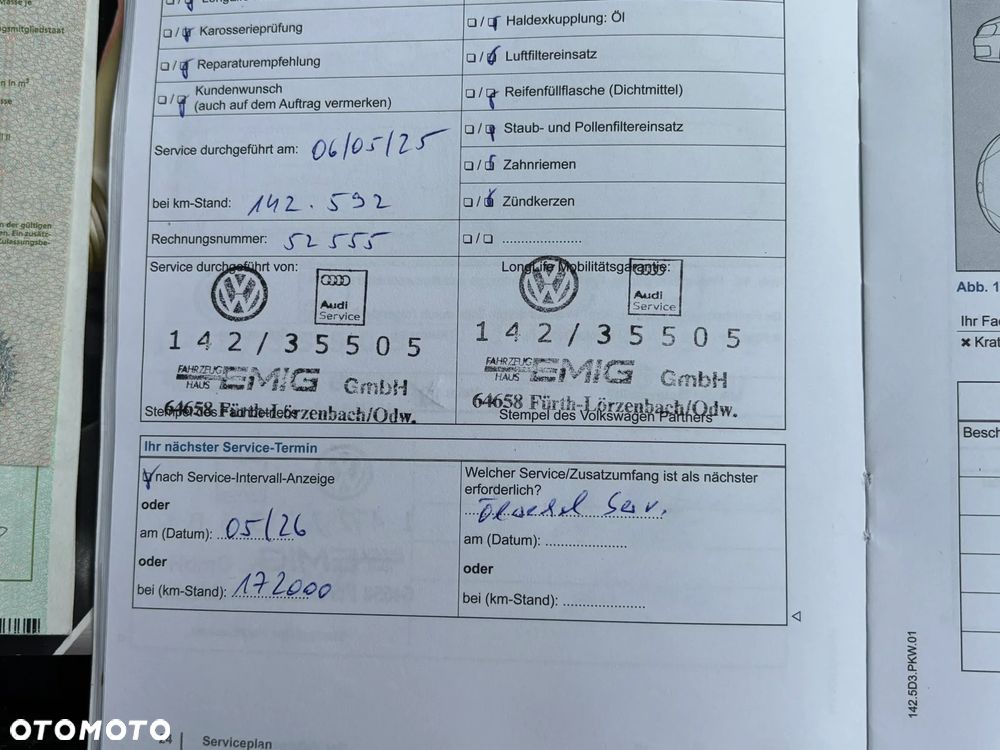 Masse je
gsmitgliedstaat
Karosserieprüfung
Reparaturempfehlung
Kundenwunsch
(auch auf dem Auftrag vermerken)
Service durchgeführt am: 06/05/25
bei km-Stand: 142.592
Rechnungsnummer: 52555
Haldexkupplung: Öl
Luftfiltereinsatz
Reifenfüllflasche (Dichtmittel)
Staub- und Pollenfiltereinsatz
Zahnriemen
Zündkerzen
Service durchgeführt von:
Audi
Service
142/35505
FAHRZEUG
HAUS EMIG GmbH
64658 Fürth-Lörzenbach/Odw.
LongLife Mobilitätsgarantie:
Audi
Service
142/35505
FAHRZEUG
HAUS EMIG GmbH
64658 Fürth-Lörzenbach/Odw.
Stempel des Volkswagen Partners
Ihr nächster Service-Termin
nach Service-Intervall-Anzeige
oder
am (Datum): 05/26
oder
bei (km-Stand): 172000
Welcher Service/Zusatzumfang ist als nächster
erforderlich?
am (Datum):
oder
bei (km-Stand):
24 Serviceplan
142.5D3.PKW.01
Abb. 1
Ihr Fa
Krat
Besch
OTOMOTO